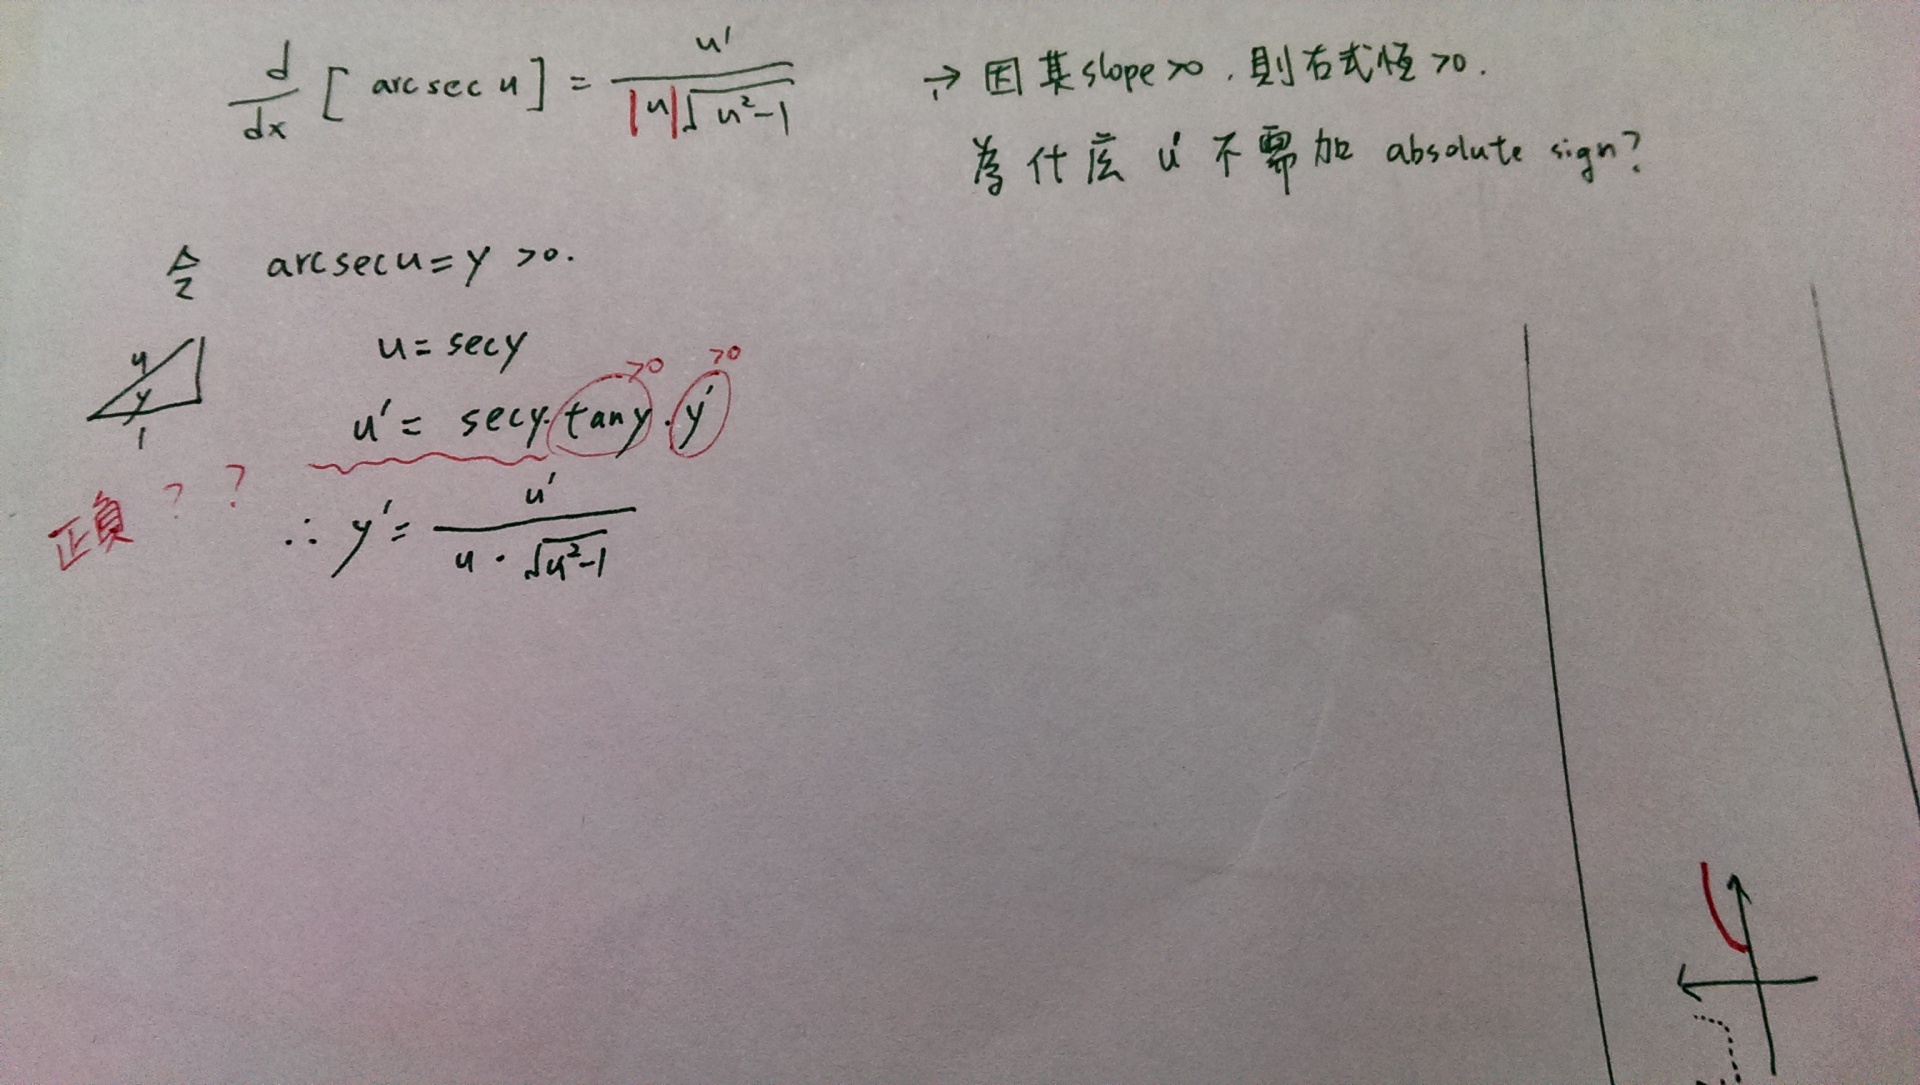 d/dx [ arcsec u ] = u' / |u|√(u²-1) → 因其 slope >0, 則右式恆 >0.
為什底 u' 不需加 absolute sign?
令 arcsec u = y >0.
u = sec y
u y 1
>0 >0
u' = sec y · tan y · y'
正負 ? ?
∴ y' = u' / u · √(u²-1)